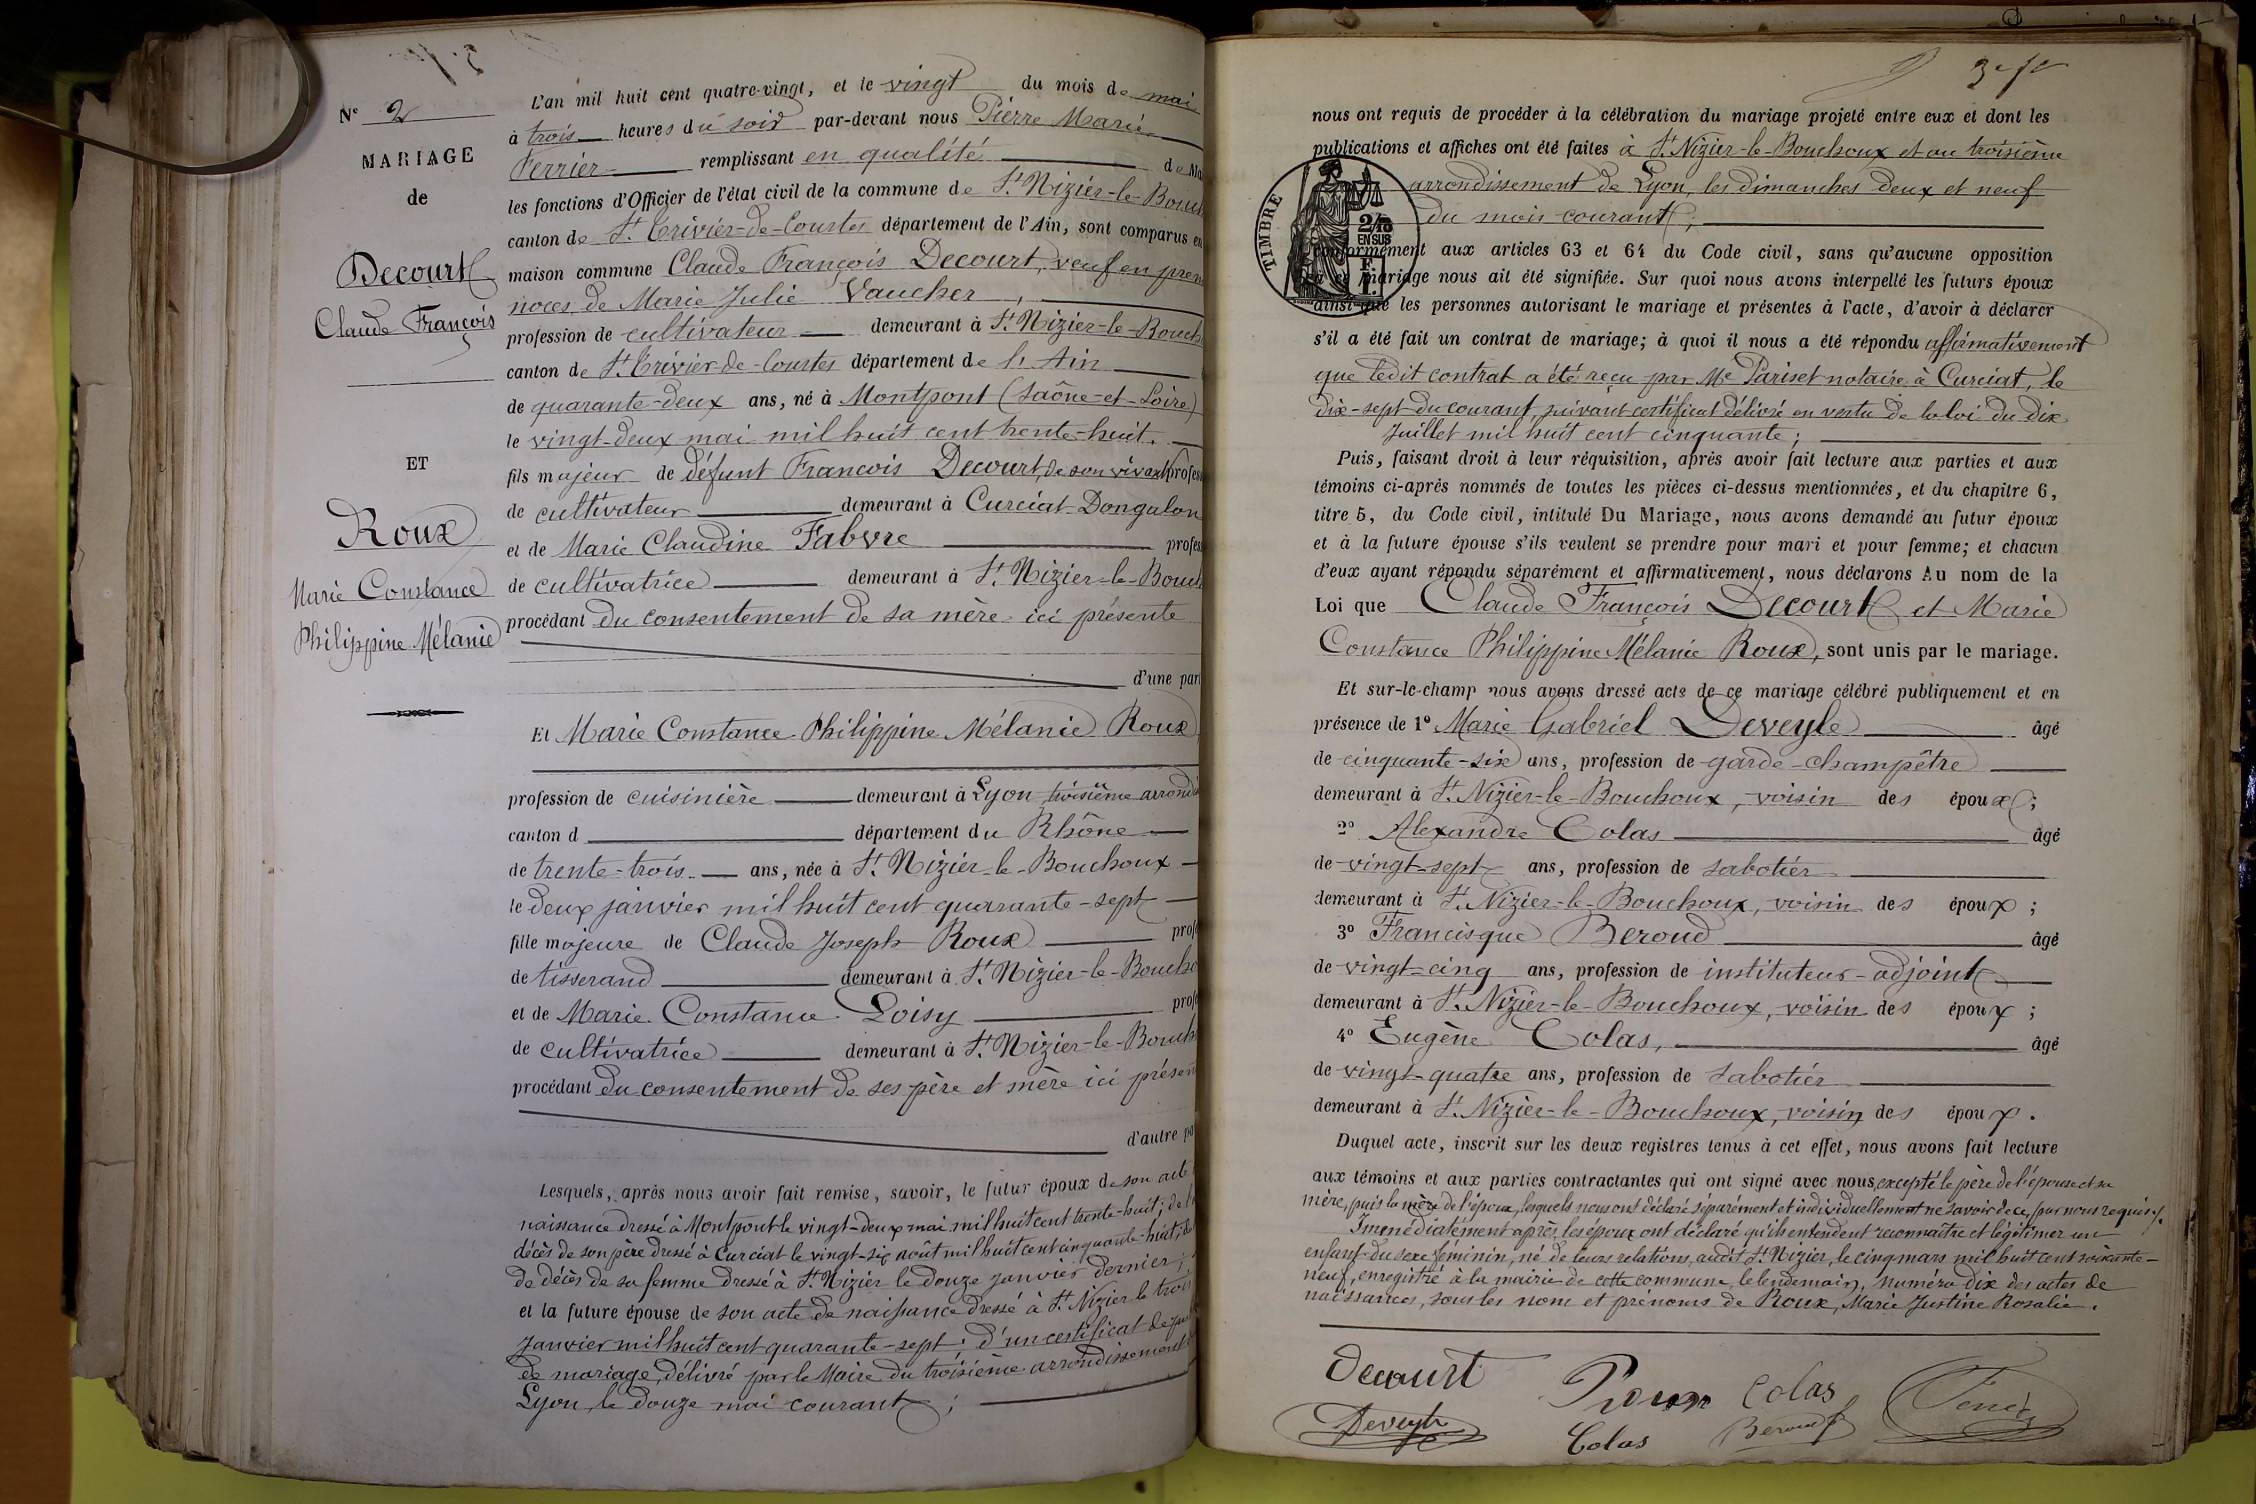 Nº 2
MARIAGE
de
Decourt
Claude François
ET
Roux
Marie Constance
Philippine Mélanie
L'an mil huit cent quatre-vingt, et le vingt du mois de mai
à trois heures du soir par-devant nous Pierre Marie
Perrier remplissant en qualité de Ma
les fonctions d'Officier de l'état civil de la commune de St Nizier-le-Bouch
canton de St Trivier-de-Courtes département de l'Ain, sont comparus en
maison commune Claude François Decourt, veuf en prem
noces de Marie Julie Vaucher,
profession de cultivateur demeurant à St Nizier-le-Bouch
canton de St Trivier-de-Courtes département de l'Ain
de quarante-deux ans, né à Montpont (Saône-et-Loire)
le vingt-deux mai mil huit cent trente-huit.
fils majeur de défunt François Decourt, de son vivant profess
de cultivateur demeurant à Curciat-Dongalon
et de Marie Claudine Fabvre profess
de cultivatrice demeurant à St Nizier-le-Bouch
procédant du consentement de sa mère ici présente
d'une part
Et Marie Constance Philippine Mélanie Roux
profession de cuisinière demeurant à Lyon troisième arrondi
canton d département du Rhône
de trente-trois ans, née à St Nizier-le-Bouchoux
le deux janvier mil huit cent quarante-sept
fille majeure de Claude Joseph Roux profe
de tisserand demeurant à St Nizier-le-Boucho
et de Marie Constance Loisy profe
de cultivatrice demeurant à St Nizier-le-Bouch
procédant du consentement de ses père et mère ici présen
d'autre pa
Lesquels, après nous avoir fait remise, savoir, le futur époux de son acte
naissance dressé à Montpont le vingt-deux mai mil huit cent trente-huit; de l'
décès de son père dressé à Curciat le vingt-six août mil huit cent cinquante-huit; de
de décès de sa femme dressé à St Nizier le douze janvier dernier;
et la future épouse de son acte de naissance dressé à St Nizier le trois
janvier mil huit cent quarante-sept; d'un certificat de pu
de mariage, délivré par le Maire du troisième arrondissement
Lyon, le douze mai courant;
nous ont requis de procéder à la célébration du mariage projeté entre eux et dont les
publications et affiches ont été faites à St Nizier-le-Bouchoux et au troisième
arrondissement de Lyon, les dimanches deux et neuf
du mois courant;
TIMBRE
2/10
EN SUS
conformément aux articles 63 et 64 du Code civil, sans qu'aucune opposition
à ce mariage nous ait été signifiée. Sur quoi nous avons interpellé les futurs époux
ainsi que les personnes autorisant le mariage et présentes à l'acte, d'avoir à déclarer
s'il a été fait un contrat de mariage; à quoi il nous a été répondu affirmativement
que ledit contrat a été reçu par Me Pariset notaire à Curciat, le
dix-sept du courant, suivant certificat délivré en vertu de la loi du dix
Juillet mil huit cent cinquante;
Puis, faisant droit à leur réquisition, après avoir fait lecture aux parties et aux
témoins ci-après nommés de toutes les pièces ci-dessus mentionnées, et du chapitre 6,
titre 5, du Code civil, intitulé Du Mariage, nous avons demandé au futur époux
et à la future épouse s'ils veulent se prendre pour mari et pour femme; et chacun
d'eux ayant répondu séparément et affirmativement, nous déclarons Au nom de la
Loi que Claude François Decourt et Marie
Constance Philippine Mélanie Roux, sont unis par le mariage.
Et sur-le-champ nous avons dressé acte de ce mariage célébré publiquement et en
présence de 1º Marie Gabriel Deveyle âgé
de cinquante-six ans, profession de garde-champêtre
demeurant à St Nizier-le-Bouchoux, voisin des époux;
2º Alexandre Colas âgé
de vingt-sept ans, profession de sabotier
demeurant à St Nizier-le-Bouchoux, voisin des époux;
3º Francisque Beroud âgé
de vingt-cinq ans, profession de instituteur-adjoint
demeurant à St Nizier-le-Bouchoux, voisin des époux;
4º Eugène Colas, âgé
de vingt-quatre ans, profession de sabotier
demeurant à St Nizier-le-Bouchoux, voisin des époux.
Duquel acte, inscrit sur les deux registres tenus à cet effet, nous avons fait lecture
aux témoins et aux parties contractantes qui ont signé avec nous, excepté le père de l'épouse et sa
mère, puis la mère de l'époux, lesquels nous ont déclaré séparément et individuellement ne savoir de ce, par nous requis.
Immédiatement après, les époux ont déclaré qu'ils entendent reconnaître et légitimer un
enfant du sexe féminin, né de leurs relations, audit St Nizier, le cinq mars mil huit cent soixante-
neuf, enregistré à la mairie de cette commune, le lendemain, numéro dix des actes de
naissances, sous les nom et prénoms de Roux, Marie Justine Rosalie.
Decourt Roux Colas
Deveyle Colas Beroud